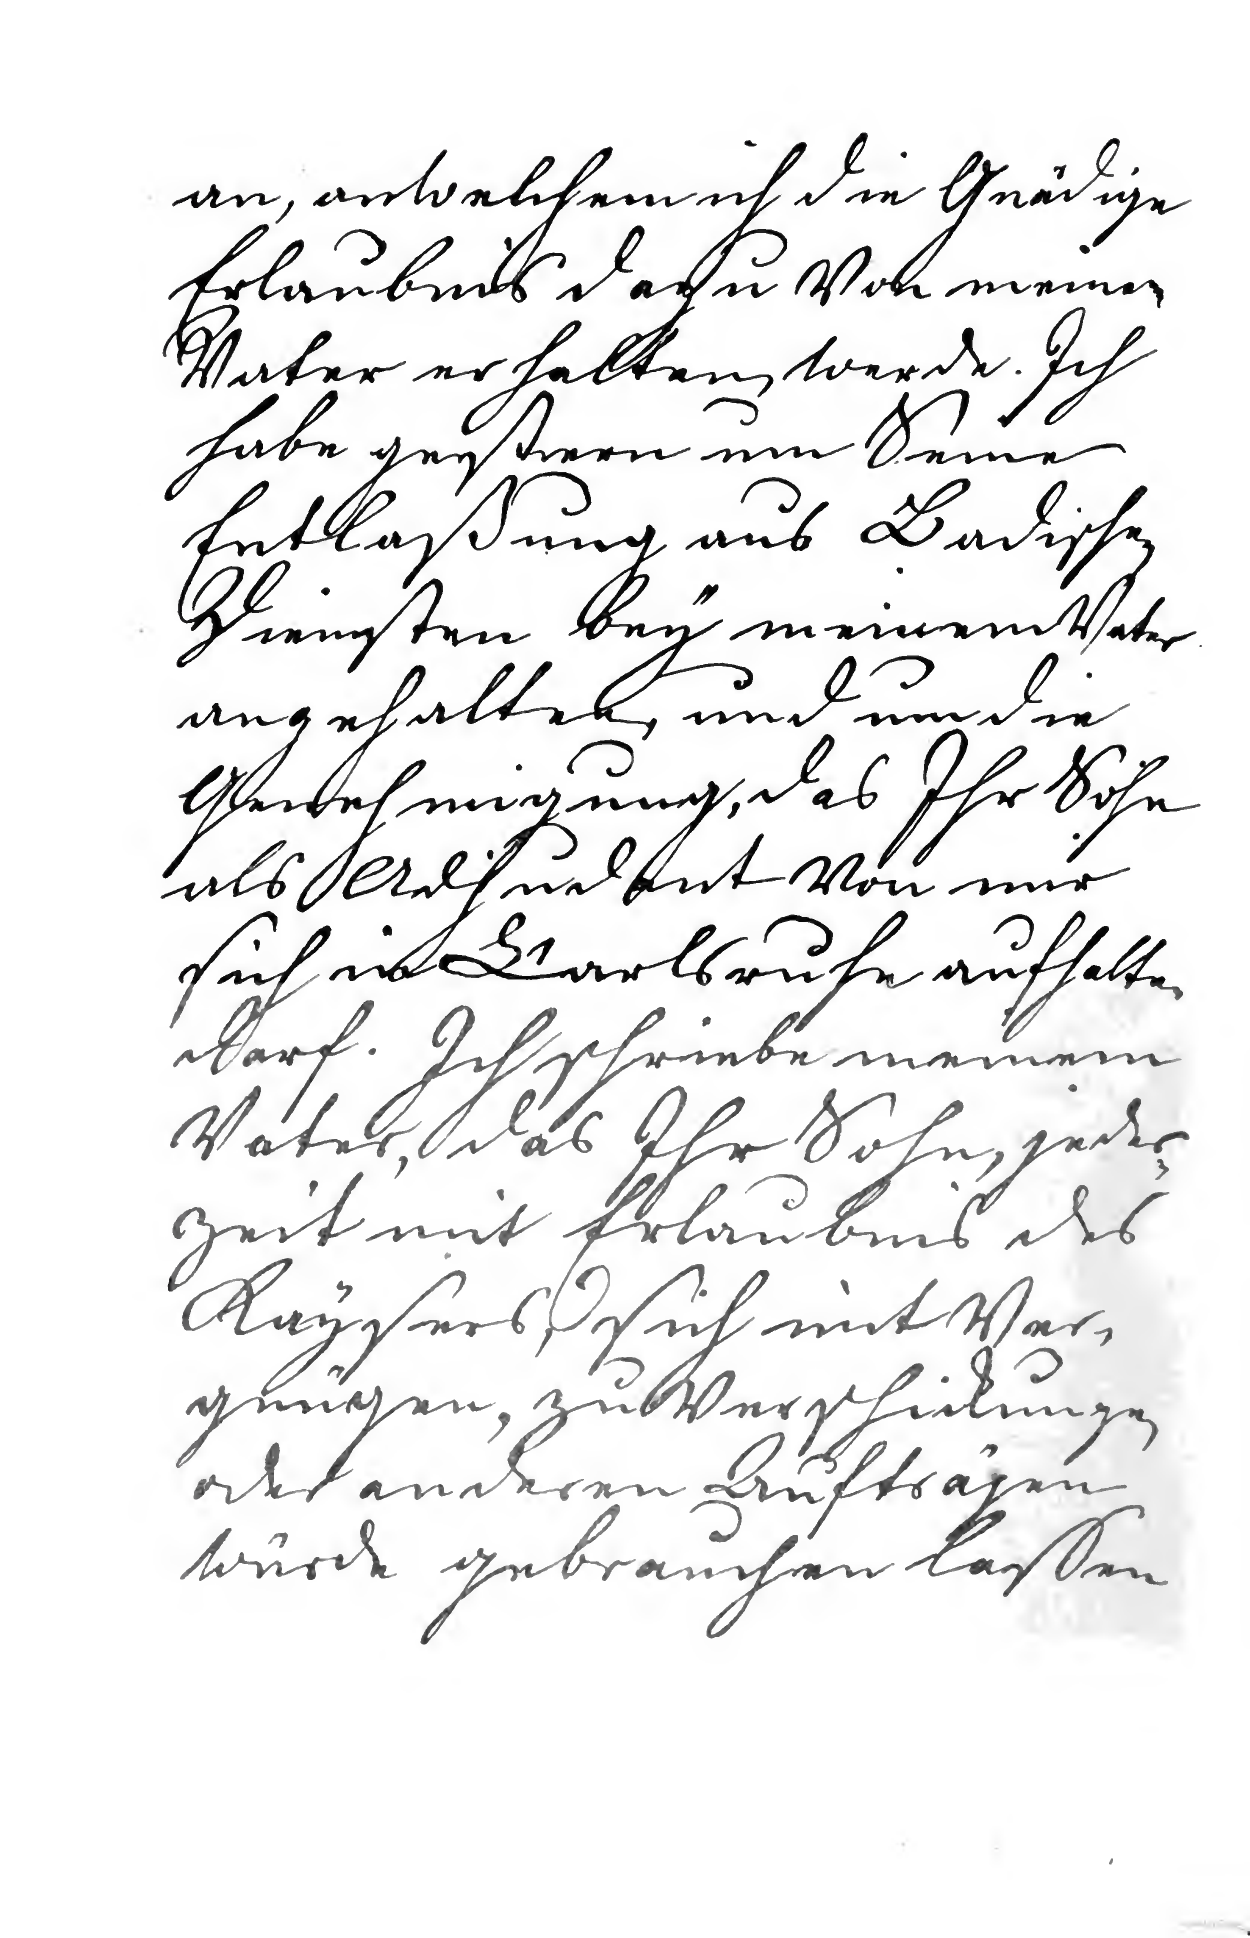 an, an welchem ich die Gnädige
Erlaubnis dazu Von meinen
Vater erhalten werde. Ich
habe gestern um Seine
Entlaßung aus Badischen
Diensten beÿ meinem Vater
angehalten, und um die
Genehmigung, das Ihr Sohn
als Adjudant Von mir
sich in Carlsruhe aufhalten
darf. Ich schriebe meinem
Vater, das Ihr Sohn, jeder-
zeit mit Erlaubnis des
Kaÿsers, sich mit Ver-
gnügen, zu Verschikungen
oder anderen Aufträgen
würde gebrauchen lassen